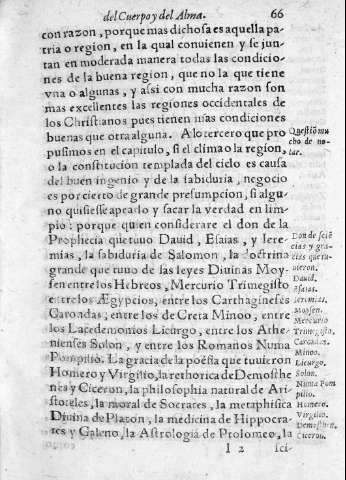 del Cuerpo y del Alma. 66
con razon, porque mas dichosa es aquella pa-
tria o region, en la qual conuienen y se jun-
tan en moderada manera todas las condicio-
nes de la buena region, que no la que tiene
vna o algunas, y assi con mucha razon son
mas excellentes las regiones occidentales de
los Christianos pues tienen mas condiciones
buenas que otra alguna. A lo tercero que pro
pusimos en el capitulo, si el clima o la region,
o la constitucion templada del cielo es causa
del buen ingenio y de la sabiduria, negocio
es por cierto de grande presumpcion, si algu-
no quisiesse apearlo y sacar la verdad en lim-
pio: porque quien considerare el don de la
Prophecia que tuuo Dauid, Esaias, y Iere-
mias, la sabiduria de Salomon, la doctrina
grande que tuuo de las leyes Diuinas Moy-
sen entre los Hebreos, Mercurio Trimegisto
entre los Ægypcios, entre los Carthagineses
Carondas, entre los de Creta Minoo, entre
los Lacedemonios Licurgo, entre los Athe-
nienses Solon, y entre los Romanos Numa
Pompilio. La gracia de la poësia que tuuieron
Homero y Virgilio, la rethorica de Demosthe
nes y Ciceron, la philosophia natural de Ari-
stoteles, la moral de Socrates, la metaphisica
Diuina de Platon, la medicina de Hippocra-
tes y Galeno, la Astrologia de Ptolomeo, la
I 2 sci-
Questiõ mu
cho de no-
tar.
Don de sciẽ
cias y gra-
cias que tu-
uieron.
Dauid.
Esaias.
Ieremias.
Moysen.
Mercurio
Trimegisto.
Carondas.
Minoo.
Licurgo.
Solon.
Numa Pom
pilio.
Homero.
Virgilio.
Demosthen.
Ciceron.